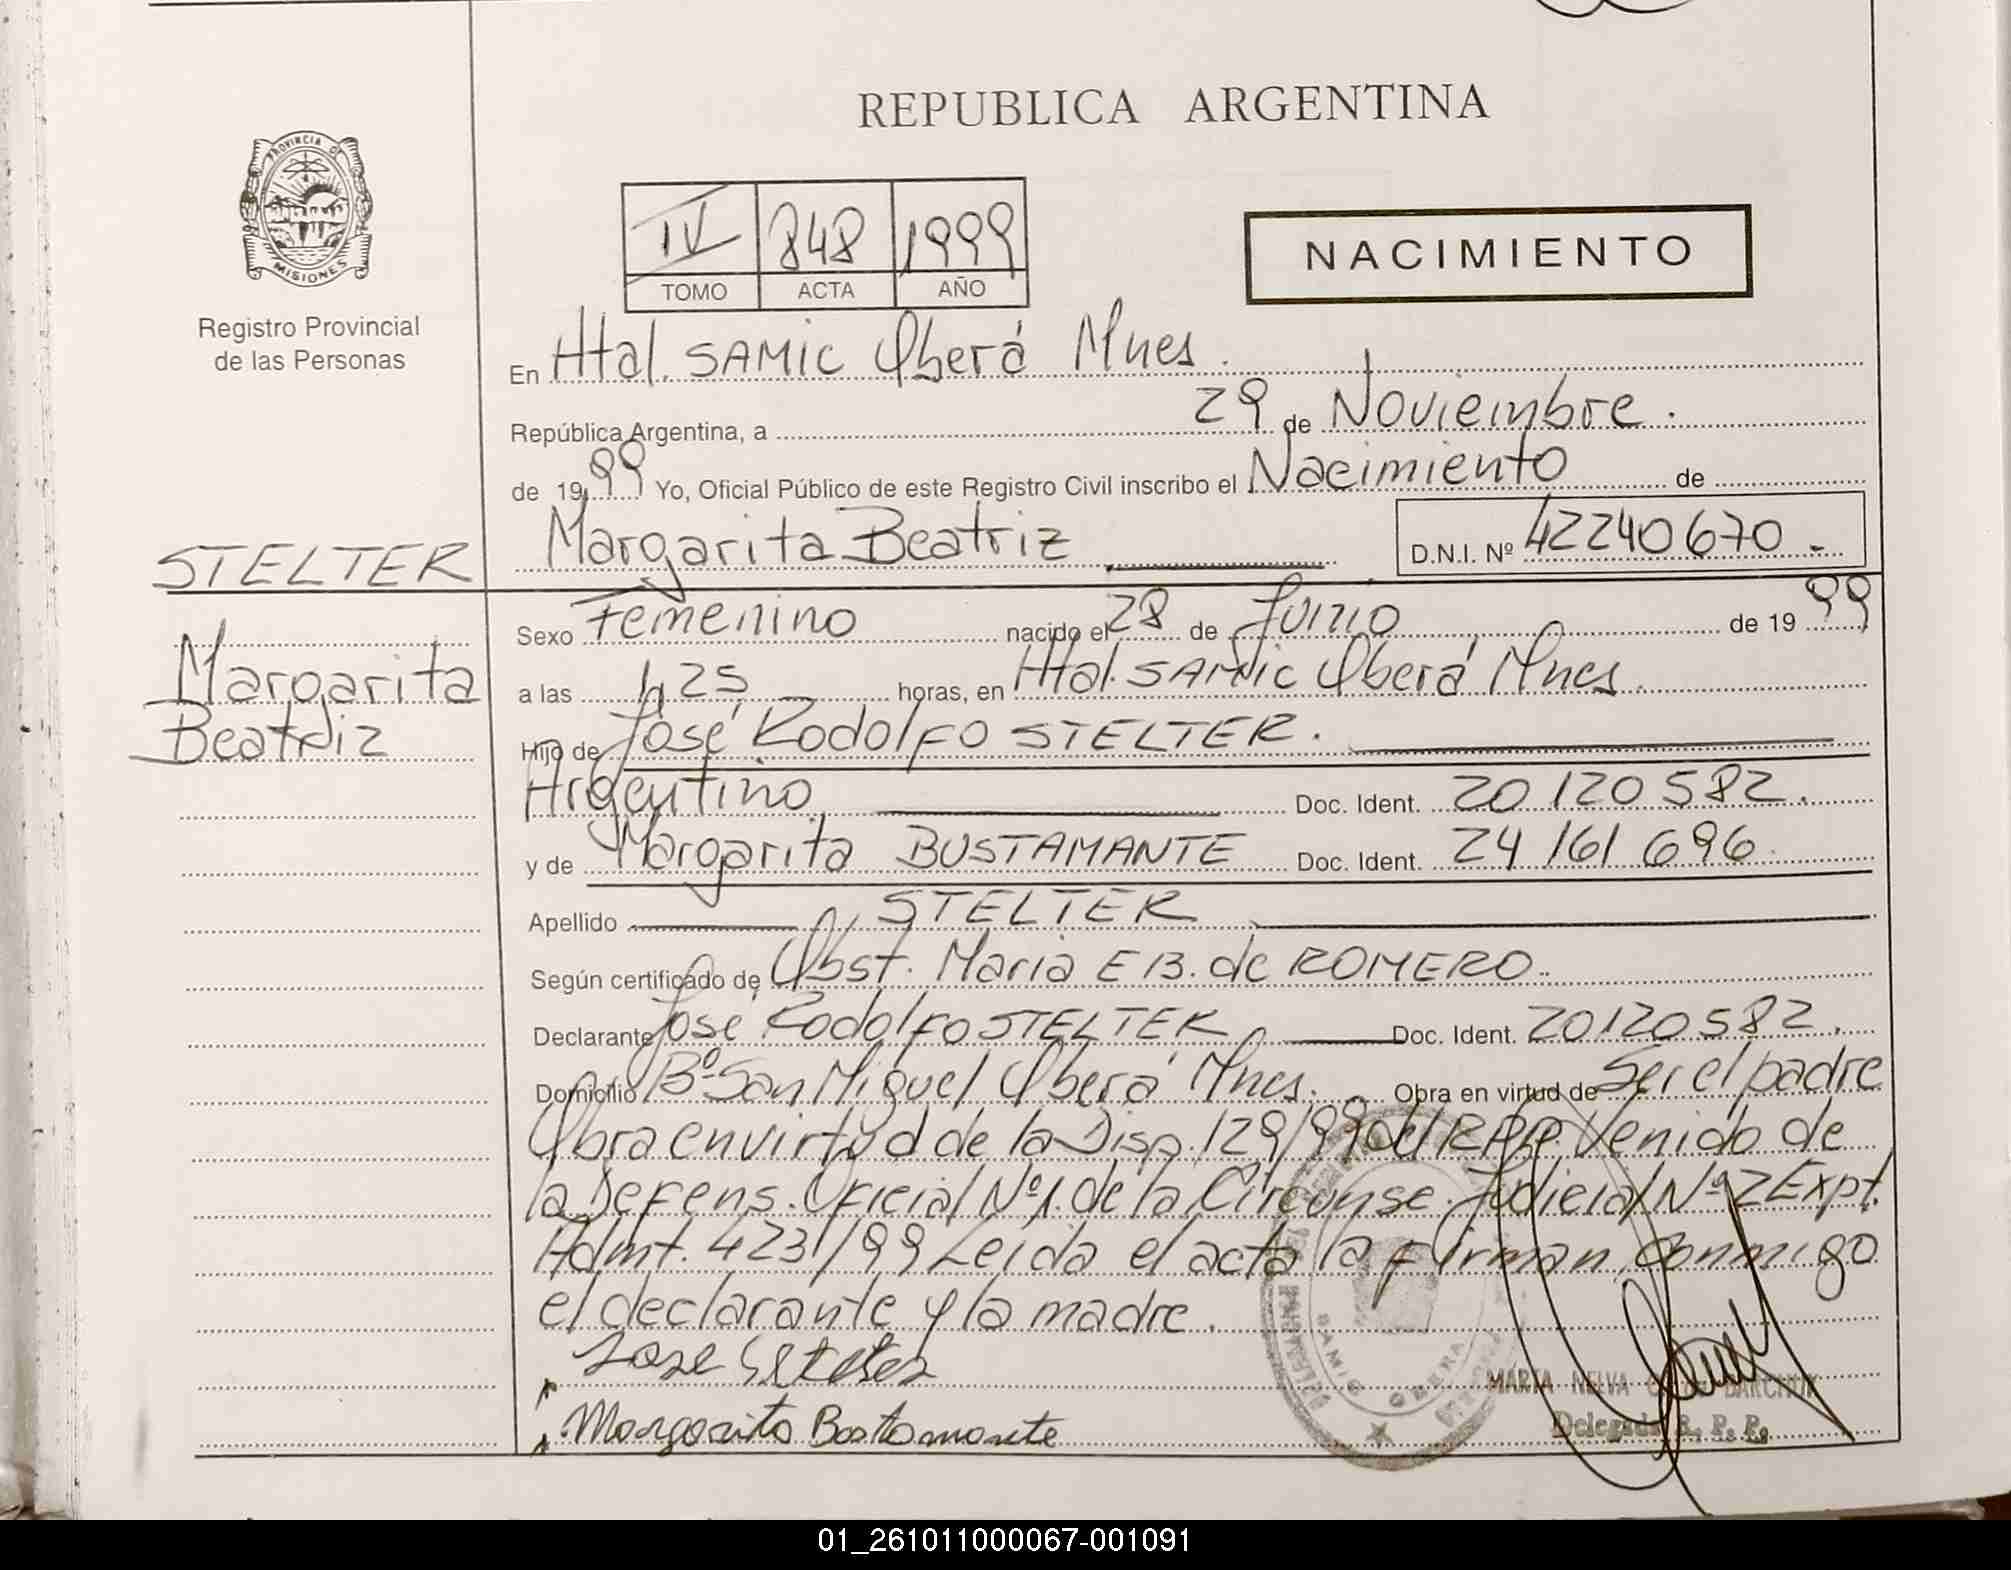 REPUBLICA ARGENTINA
PROVINCIA DE
MISIONES
Registro Provincial
de las Personas
IV 848 1999
TOMO ACTA AÑO
NACIMIENTO
En Htal. SAMIC Oberá Mnes.
República Argentina, a 29 de Noviembre.
de 1999 Yo, Oficial Público de este Registro Civil inscribo el Nacimiento de
Margarita Beatriz D.N.I. Nº 42240670.-
STELTER
Margarita
Beatriz
Sexo Femenino nacido el 28 de Junio de 1999
a las 4,25 horas, en Htal. SAMIC Oberá Mnes.
Hijo de José Rodolfo STELTER.
Argentino Doc. Ident. 20120582.
y de Margarita BUSTAMANTE Doc. Ident. 24161696.
Apellido STELTER
Según certificado de Obst. Maria E B. de ROMERO.
Declarante José Rodolfo STELTER Doc. Ident. 20120582.
Domicilio Bº San Miguel Oberá Mnes. Obra en virtud de Ser el padre
Obra en virtud de la Disp. 129/99 del R.P.P. Venido de
la Defens. Oficial Nº 1. de la Circunsc. Judicial Nº 2 Expt.
Admt. 423/99 Leida el acta la firman conmigo
el declarante y la madre.
Jose Stelter
Margarita Bustamante
SAMIC OBERA
MARTA NELVA
Delegada R. P. P.
01_261011000067-001091